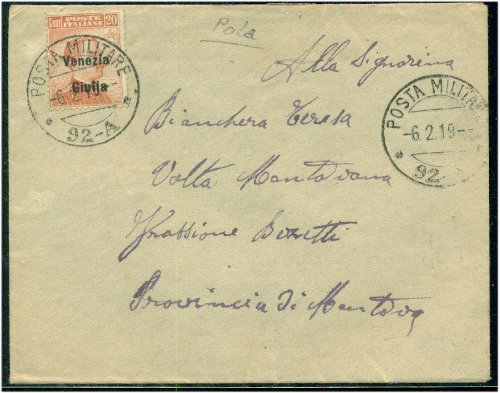 Cent POSTE ITALIANE 20
Venezia
Giulia
POSTA MILITARE
-6.2.19-
92-A
Pola
Alla Signorina
POSTA MILITARE
-6.2.19-
92-A
Bianchera Teresa
Volta Mantovana
Frassione Bozetti
Provincia di Mantova